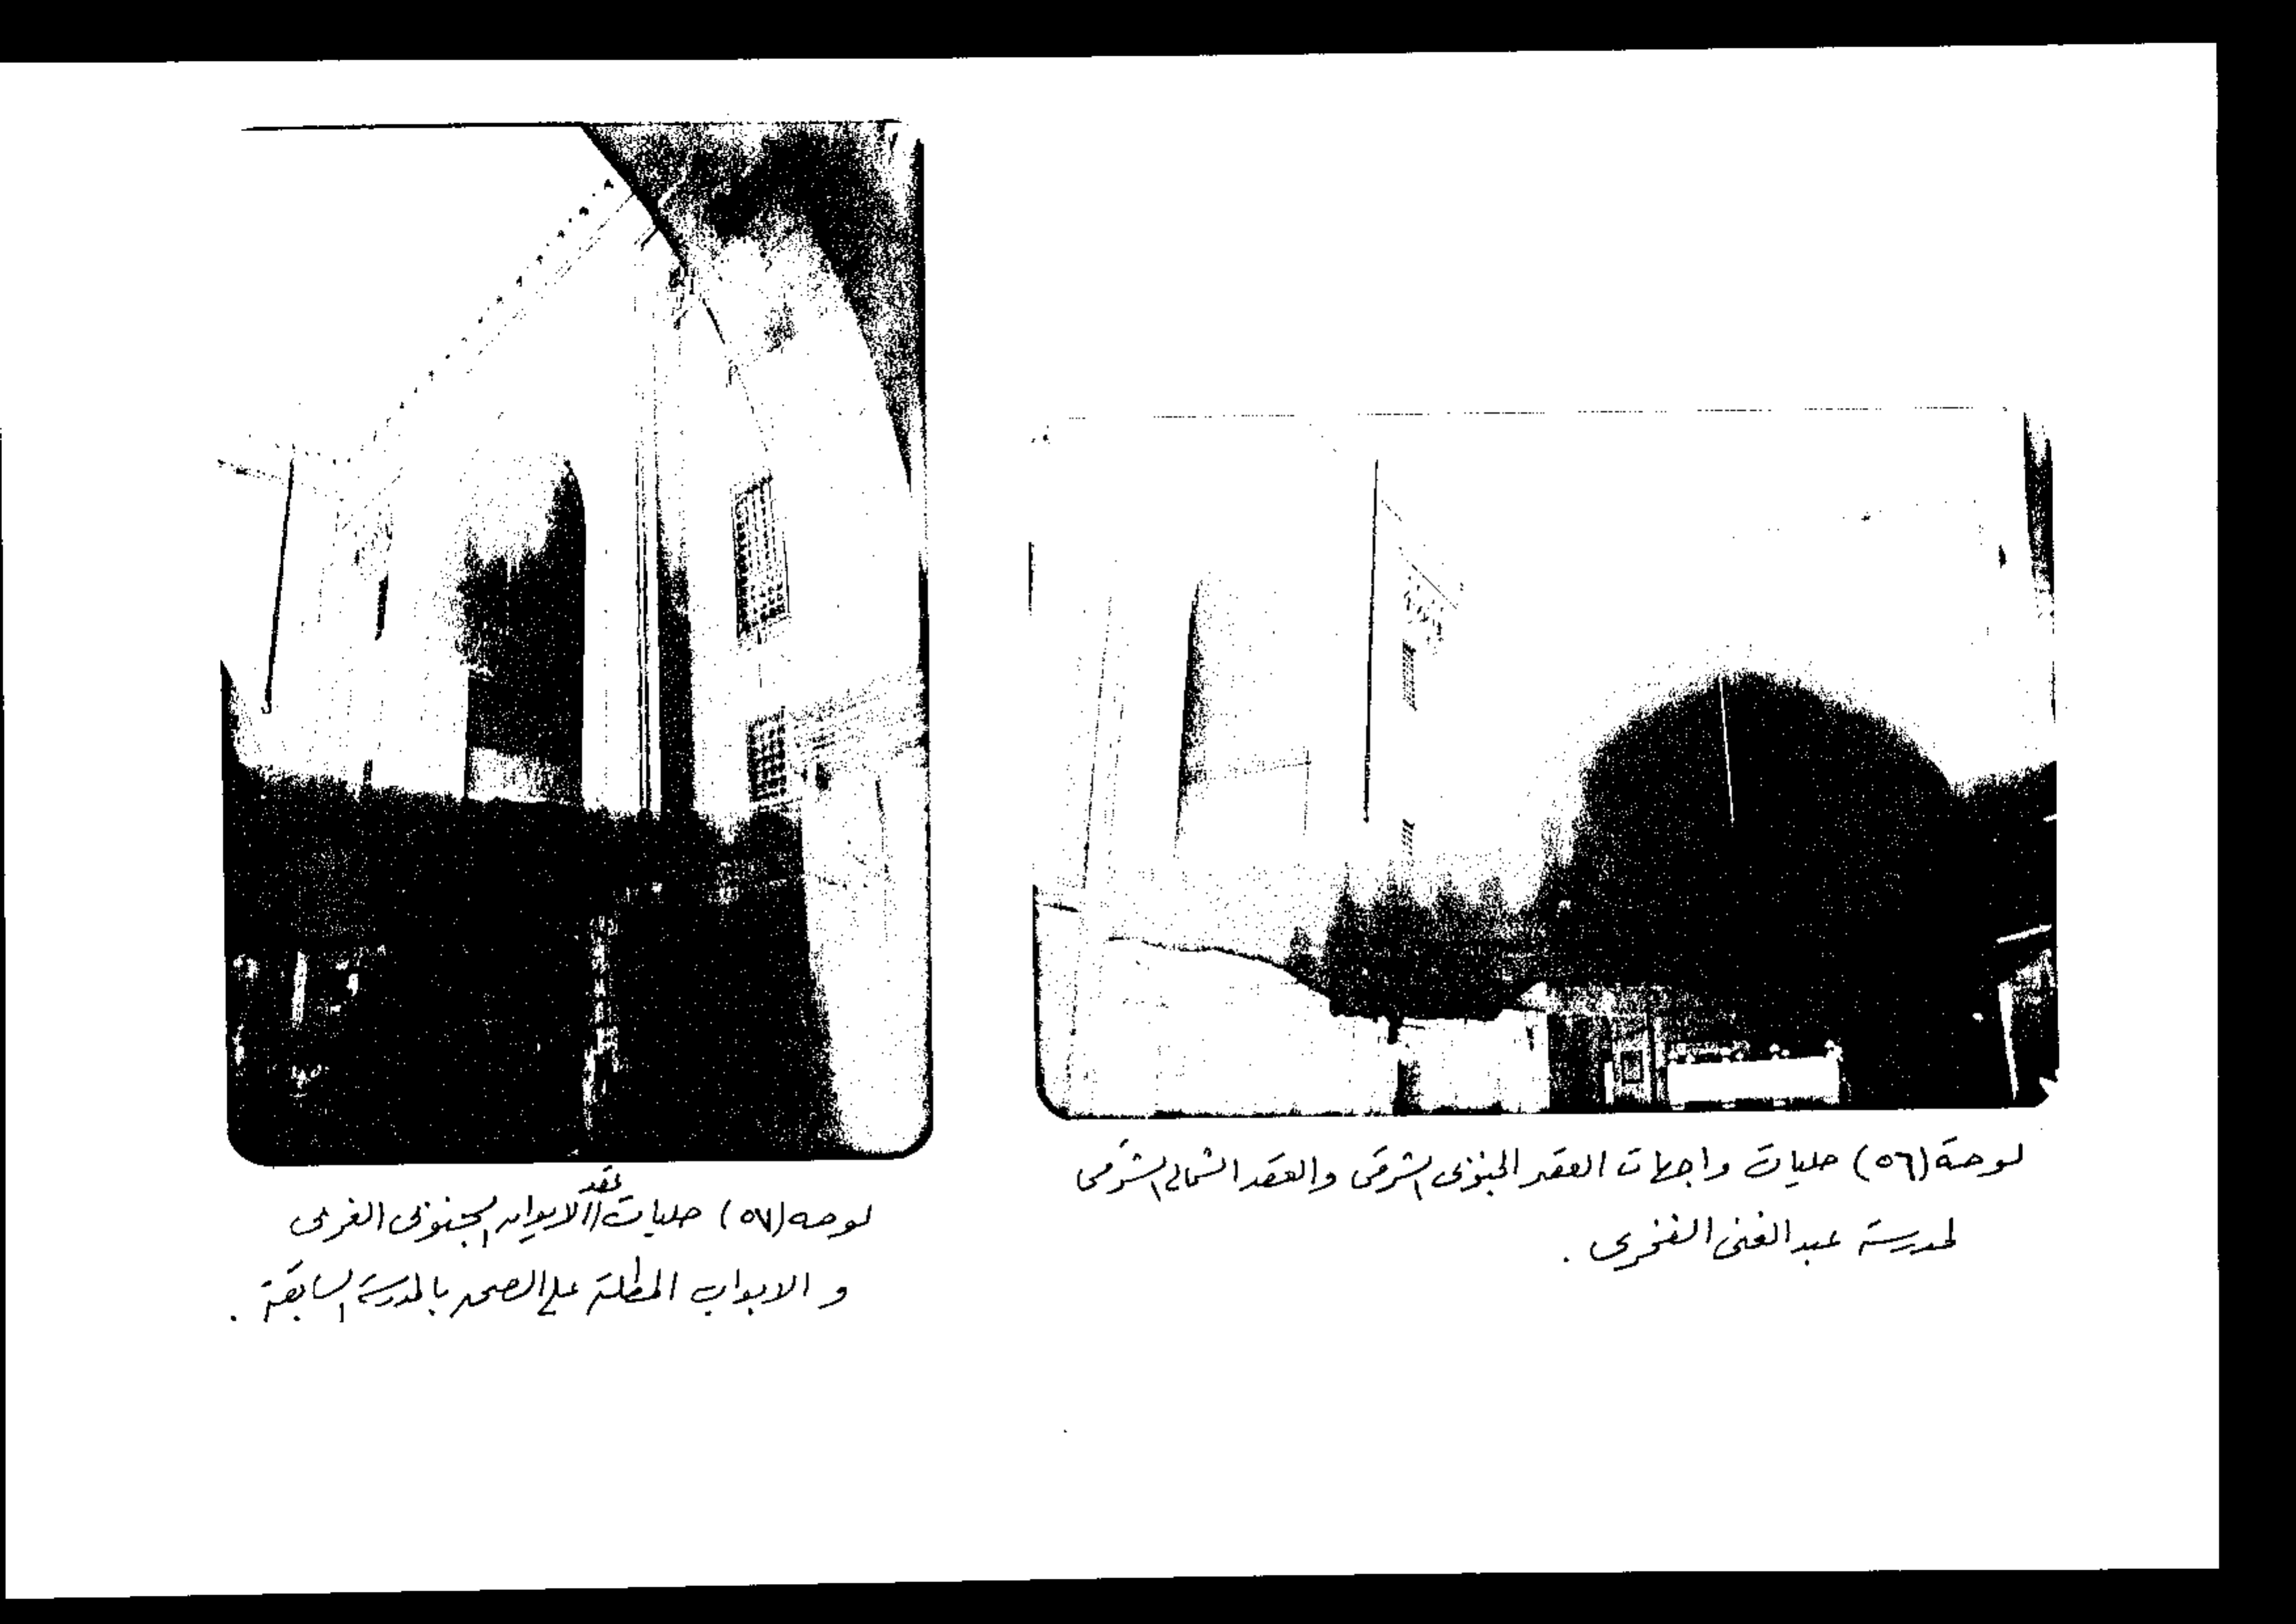 لوحة (٥٦) حليات واجهات العقد الجنوبى الشرقى والعقد الشمالى الشرقى
لمدرسة عبد الغنى الفخرى .
لوحه (٥٧) حليات عقد الايوان الجنوبى الغربى
و الابواب المطلة على الصحن بالمدرسة السابقة .